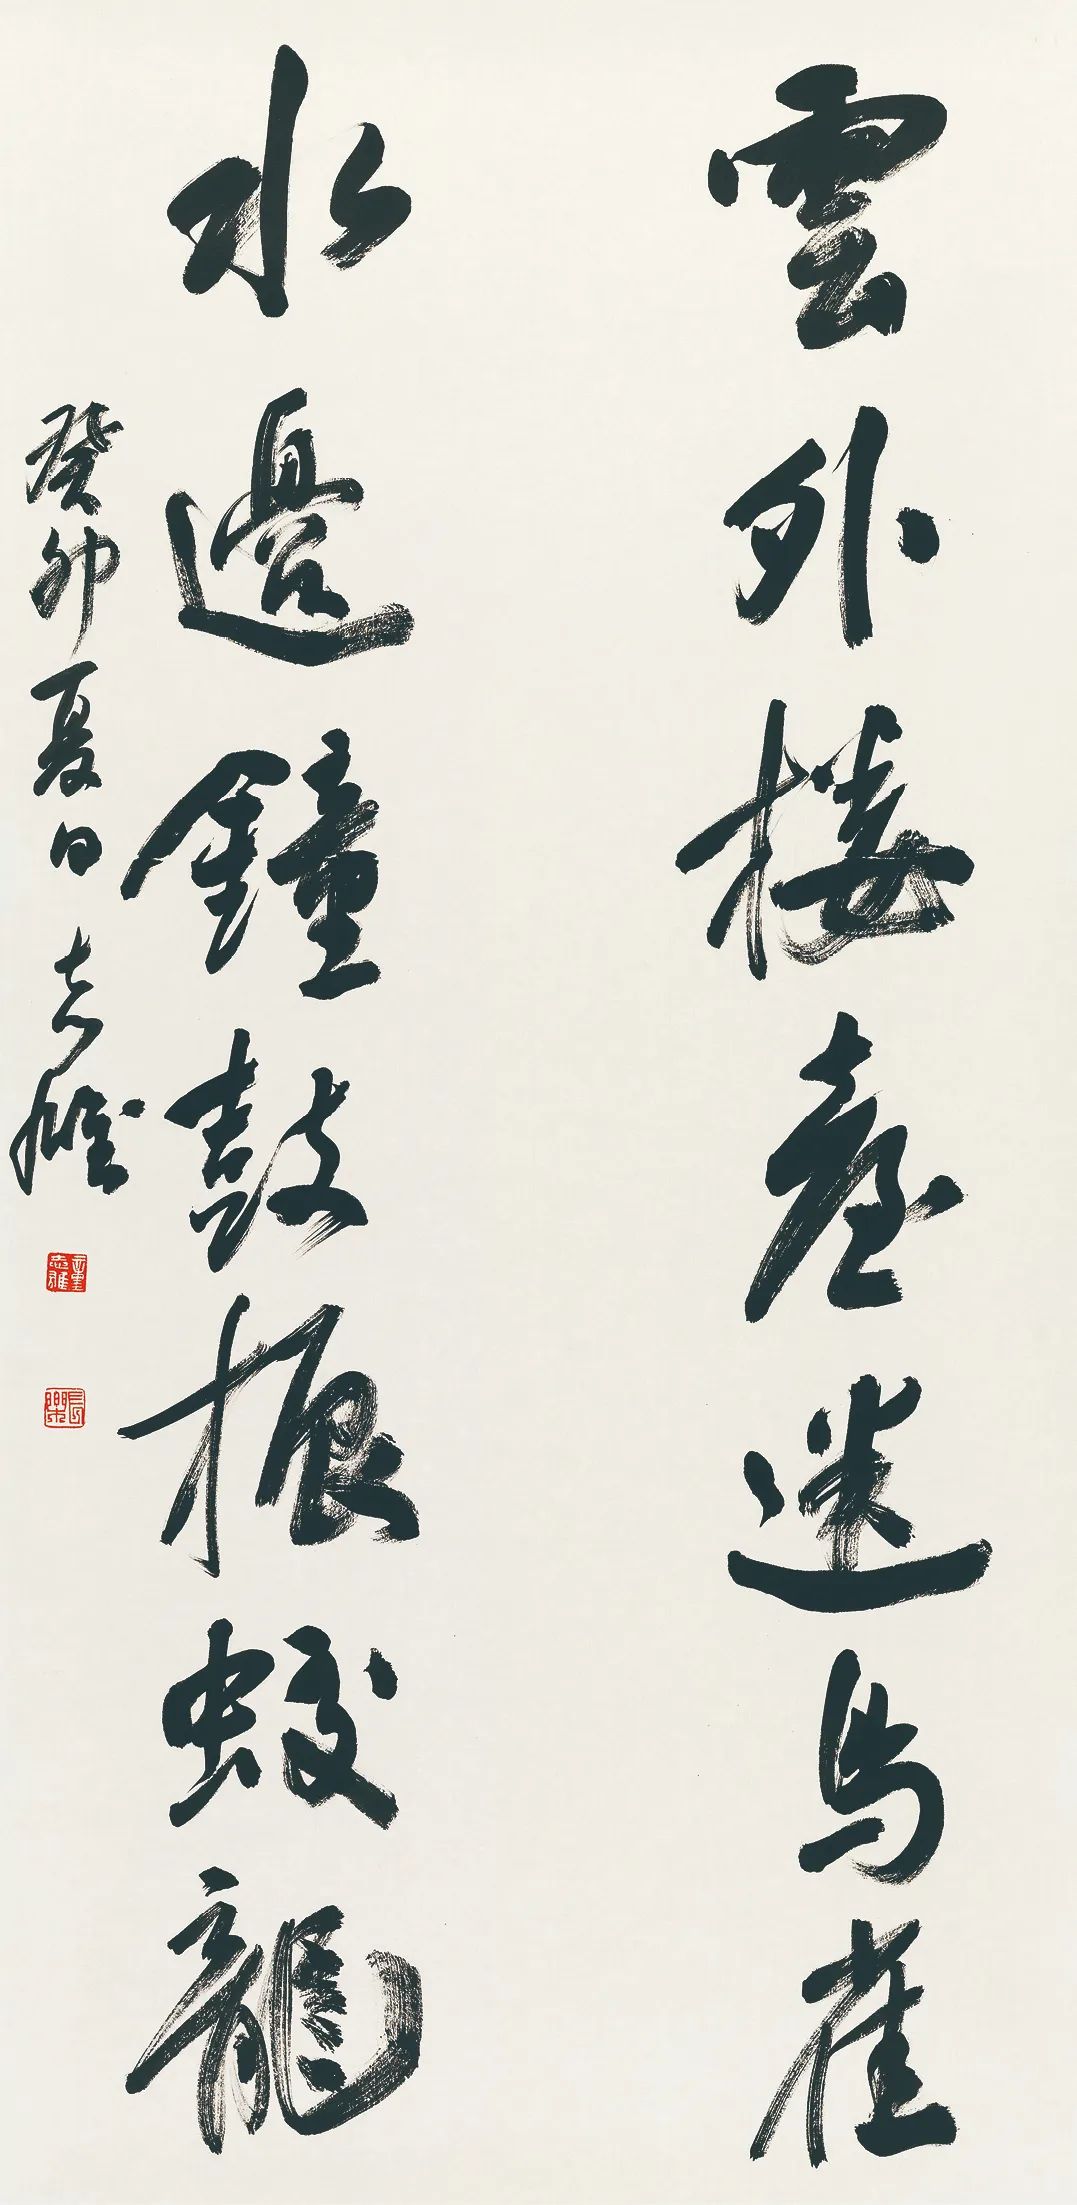 雲外樓臺迷鳥雀
水邊鐘鼓振蛟龍
癸卯夏日志雄
童志雄
長樂